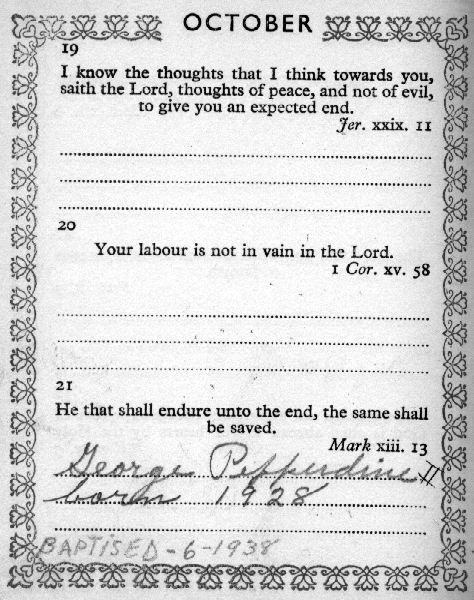 OCTOBER
19
I know the thoughts that I think towards you,
saith the Lord, thoughts of peace, and not of evil,
to give you an expected end.
Jer. xxix. 11
20
Your labour is not in vain in the Lord.
1 Cor. xv. 58
21
He that shall endure unto the end, the same shall
be saved.
Mark xiii. 13
George Pepperdine II
born 1928
BAPTISED - 6-1938